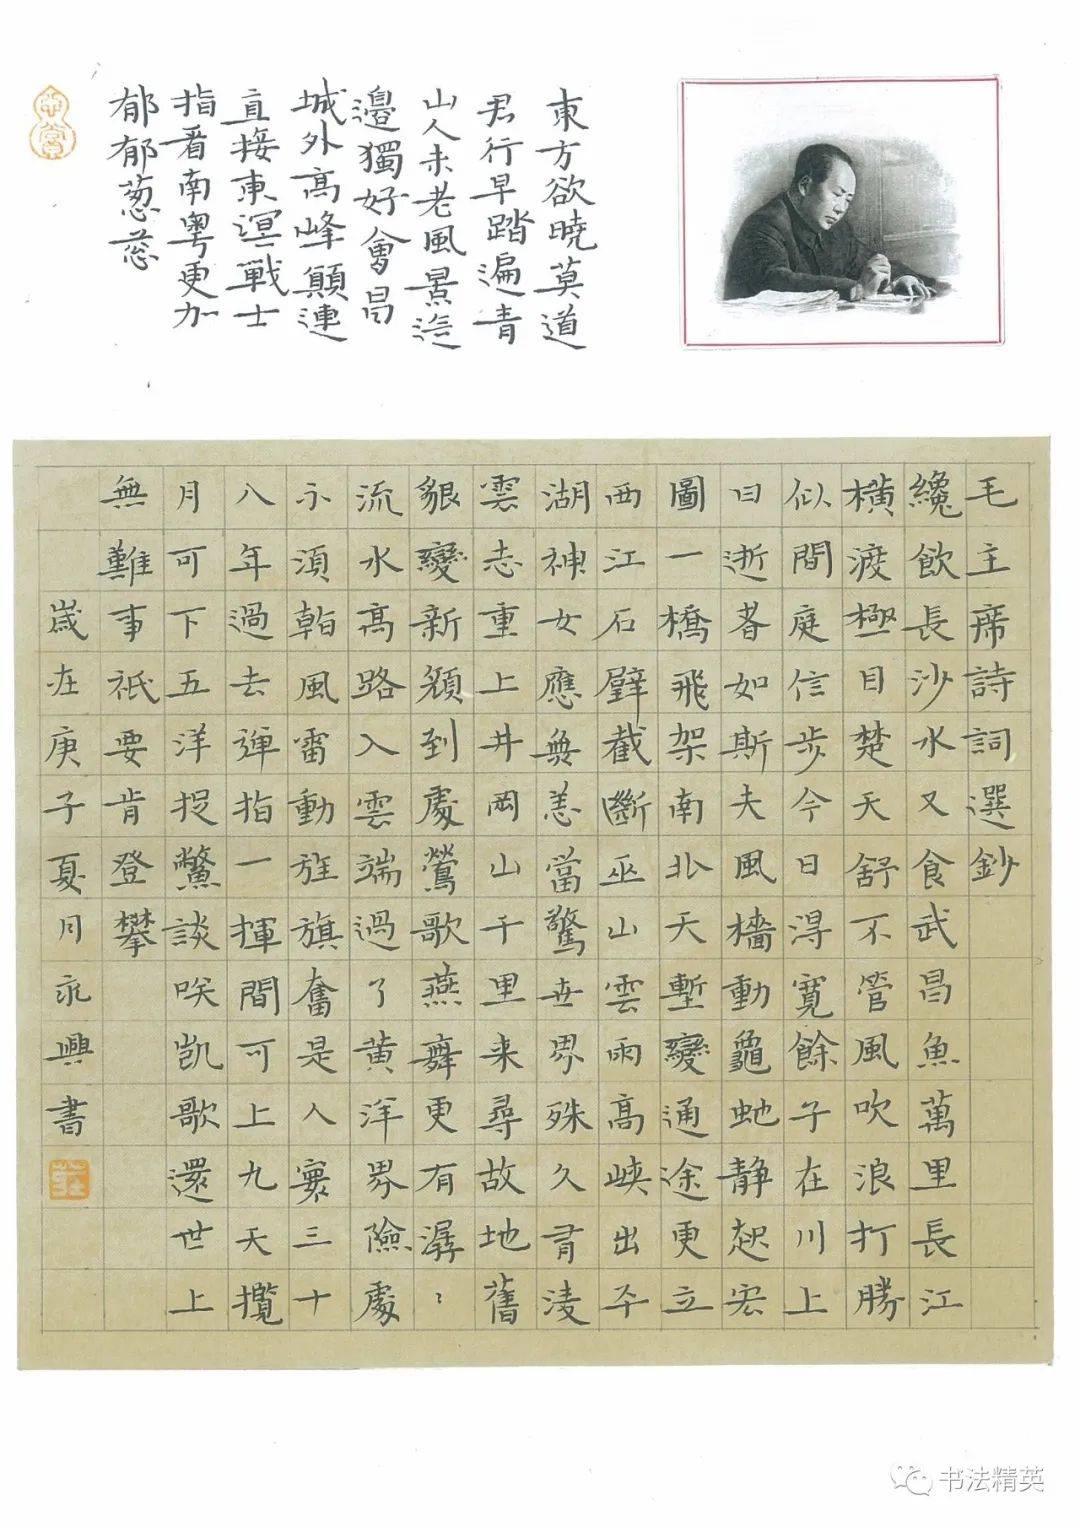 東方欲曉莫道
君行早踏遍青
山人未老風景這
邊獨好會昌
城外高峰顛連
直接東溟戰士
指看南粵更加
郁郁葱葱
毛主席詩詞選鈔
纔飲長沙水又食武昌魚萬里長江
橫渡極目楚天舒不管風吹浪打勝
似閒庭信步今日得寬餘子在川上
曰逝者如斯夫風檣動龜蛇静起宏
圖一橋飛架南北天塹變通途更立
西江石壁截斷巫山雲雨高峽出平
湖神女應無恙當驚世界殊久有凌
雲志重上井岡山千里来尋故地舊
貌變新顏到處鶯歌燕舞更有潺〻
流水高路入雲端過了黃洋界險處
不須看風雷動旌旗奮是人寰三十
八年過去彈指一揮間可上九天攬
月可下五洋捉鱉談笑凱歌還世上
無難事祇要肯登攀
歲在庚子夏月永興書
莊
书法精英